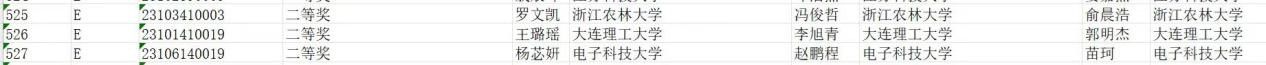 525 E 23103410003 二等奖 罗文凯 浙江农林大学 冯俊哲 浙江农林大学 俞晨浩 浙江农林大学
526 E 23101410019 二等奖 王璐瑶 大连理工大学 李旭青 大连理工大学 郭明杰 大连理工大学
527 E 23106140019 二等奖 杨苾妍 电子科技大学 赵鹏程 电子科技大学 苗珂 电子科技大学